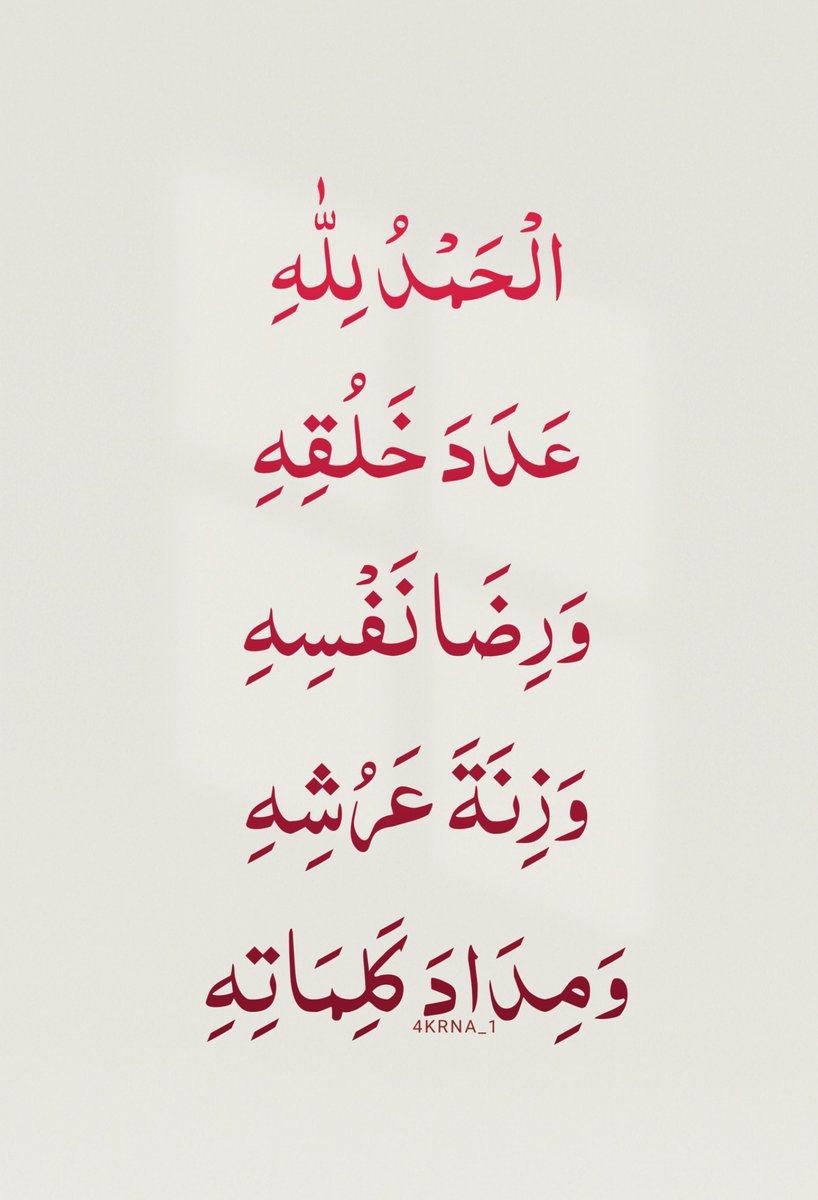 الْحَمْدُ لِلّٰهِ
عَدَدَ خَلُقِهِ
وَرِضَا نَفْسِهِ
وَزِنَةَ عَرُشِهِ
وَمِدَادَ كَلِمَاتِهِ
4KRNA_1